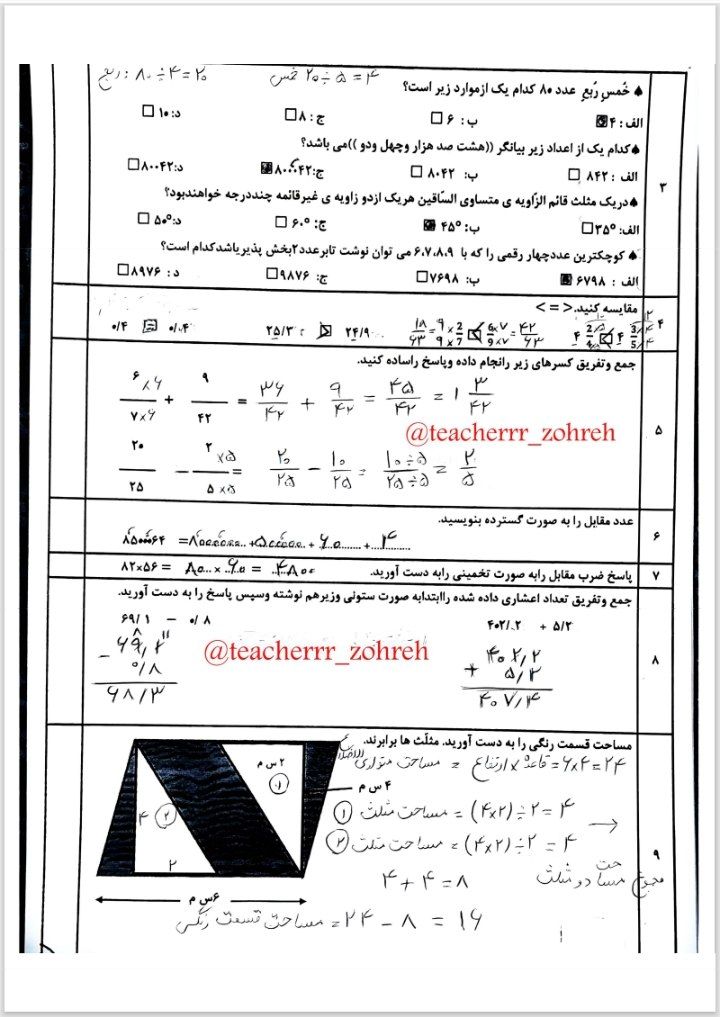 ربع : ۸۰÷۴=۲۰ خمس ۲۰÷۵=۴
♠ خُمسِ رُبع عدد ۸۰ کدام یک ازموارد زیر است؟
الف : ۴ ب : ۶ ج : ۸ د: ۱۰
♠کدام یک از اعداد زیر بیانگر ((هشت صد هزار وچهل ودو ))می باشد؟
۳
الف : ۸۴۲ ب: ۸۰۴۲ ج: ۸۰۰۰۴۲ د: ۸۰۰۴۲
♠دریک مثلث قائم الزّاویه ی متساوی السّاقین هریک ازدو زاویه ی غیرقائمه چنددرجه خواهندبود؟
الف: ۳۵° ب: ۴۵° ج: ۶۰° د: ۵۰°
♠ کوچکترین عددچهار رقمی را که با ۶،۷،۸،۹ می توان نوشت تابرعدد۲بخش پذیرباشدکدام است؟
الف : ۶۷۹۸ ب: ۷۶۹۸ ج: ۹۸۷۶ د : ۸۹۷۶
۴
مقایسه کنید.< = >
۰/۴ = ۲۵/۳ > ۲۴/۹
۵
جمع وتفریق کسرهای زیر راانجام داده وپاسخ راساده کنید.
۶×۶/۷×۶ + ۹/۴۲ = ۳۶/۴۲ + ۹/۴۲ = ۴۵/۴۲ = ۱ ۳/۴۲
@teacherrr_zohreh
۲۰/۲۵ − ۲×۵/۵×۵ = ۲۰/۲۵ − ۱۰/۲۵ = ۱۰÷۵/۲۵÷۵ = ۲/۵
۶
عدد مقابل را به صورت گسترده بنویسید.
۷
پاسخ ضرب مقابل رابه صورت تخمینی رابه دست آورید. ۸۲×۵۶ = ۸۰ × ۶۰ = ۴۸۰۰
جمع وتفریق تعداد اعشاری داده شده راابتدابه صورت ستونی وزیرهم نوشته وسپس پاسخ را به دست آورید.
۶۹/۱ − ۰/۸ ۴۰۲/۲ + ۵/۲
۸
@teacherrr_zohreh
۴۰۲/۲
− ۰/۸ + ۵/۲
۶۸/۳ ۴۰۷/۴
مساحت قسمت رنگی را به دست آورید. مثلّث ها برابرند.
مساحت متوازی الاضلاع = قاعده × ارتفاع = ۶×۴=۲۴
۲ س م
۴ س م
۱
① مساحت مثلث = (۴×۲)÷۲=۴
۴ ②
② مساحت مثلث = (۴×۲)÷۲=۴
۹
۲
مجموع مساحت دو مثلث ۴+۴=۸
۶س م
مساحت قسمت رنگی = ۲۴−۸=۱۶